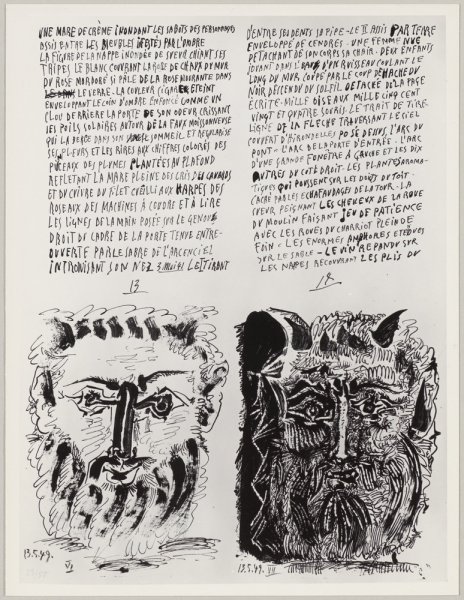 UNE MARE DE CRÈME INONDANT LES SABOTS DES PERSONNAGES
ASSIS ENTRE LES MEUBLES JETÉS PAR L'OMBRE
LA FIGURE DE LA NAPPE INONDÉE DE SUEUR CHIANT SES
TRIPES LE BLANC COUVRANT LA ROUE DE CHAUX DU MUR
DU ROSE MORDORÉ SI PÂLE DE LA ROSE MOURANTE DANS
LE VERRE. LA COULEUR CIGARE ÉTEINT
ENVELOPPANT LE COIN D'OMBRE ENFONCÉ COMME UN
CLOU DERRIÈRE LA PORTE DE SON ODEUR CRISSANT
LES POILS SOLAIRES AUTOUR DE LA FAUX MOISSONNEUSE
QUI LA BERCE DANS SON SOMMEIL ET RÉGULARISE
SES PLEURS ET LES RIRES AUX CHIFFRES COLORÉS DES
PUCEAUX DES PLUMES PLANTÉES AU PLAFOND
REFLÉTANT LA MARE PLEINE DES CRIS DES CANARDS
ET DU CUIVRE DU FILET CUEILLI AUX HARPES DES
ROSEAUX DES MACHINES À COUDRE ET À LIRE
LES LIGNES DE LA MAIN POSÉE SUR LE GENOU
DROIT DU CADRE DE LA PORTE TENUE ENTRE-
OUVERTE PAR LE SABRE DE L'ARC EN CIEL
INTROMISANT SON NEZ LE TIRANT
13
D'ENTRE SES DENTS SA PIPE - LE PARTERRE
ENVELOPPÉ DE CENDRES - UNE FEMME NUE
DÉTACHANT DE SON CORPS SA CHAIR - DEUX ENFANTS
JOUANT DANS D'UN RUISSEAU COULANT LE
LONG DU MUR COUPÉ PAR LE COUP DE HACHE DU
NOIR DESCENDU DU SOLEIL DÉTACHÉ DE LA PAGE
ÉCRITE - MILLE OISEAUX MILLE CINQ CENT
VINGT ET QUATRE SOURIS LE TRAIT DE TIRE-
LIGNE DE LA FLÈCHE TRAVERSANT LE CIEL
COUVERT D'HIRONDELLES POSÉ DESSUS, L'ARC DU
PONT - L'ARC DE LA PORTE D'ENTRÉE - L'ARC
D'UNE GRANDE FENÊTRE À GAUCHE ET LES DIX
AUTRES DU CÔTÉ DROIT - LES PLANTES AROMA-
TIQUES QUI POUSSENT SUR LES DOIGTS DU TOIT -
CACHÉ PAR LES ÉCHAFAUDAGES DE LA TOUR - LA
SUEUR PEIGNANT LES CHEVEUX DE LA ROUE
DU MOULIN FAISANT JEU DE PATIENCE
AVEC LES ROUES DU CHARRIOT PLEIN DE
FOIN - LES ÉNORMES AMPHORES ÉTENDUES
SUR LE SABLE - LE VIN RÉPANDU SUR
LES NAPPES RECOUVRANT LES PLIS DU
14
13.5.49.
VI
13.5.49. VII